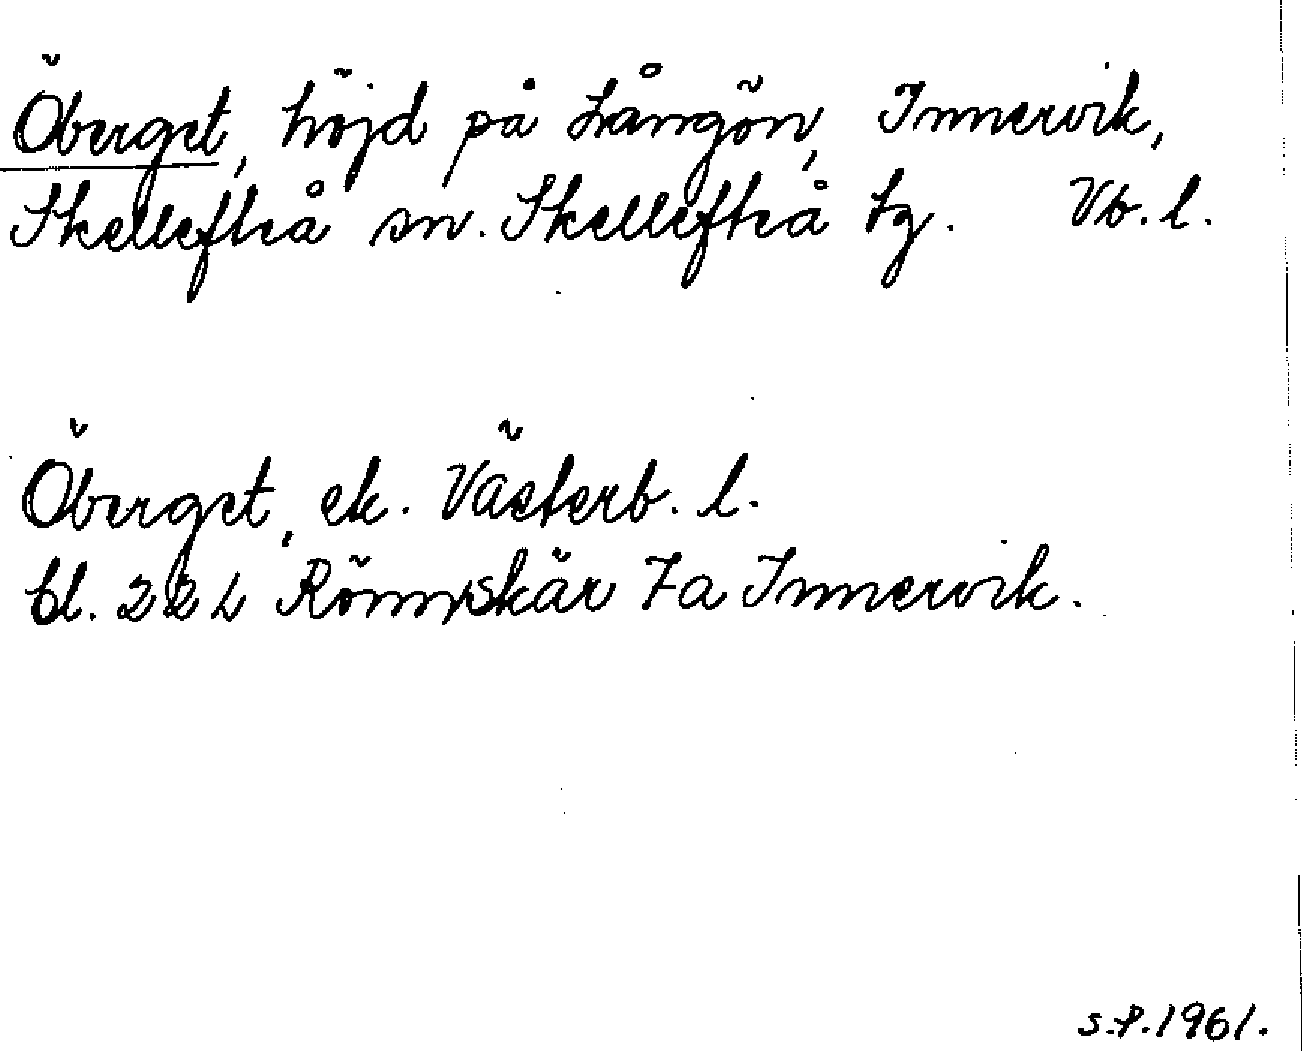 Öberget, höjd på Långön, Innervik,
Skellefteå sn. Skellefteå tg. Vb. l.
Öberget, ek. Västerb. l.
bl. 22 L Rönnskär 7a Innervik.
S.P. 1961.